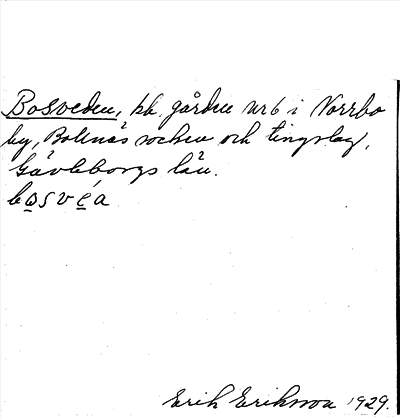 Bosveden, på gården nr 6 i Norrbo
by, Bollnäs socken och tingslag,
Gävleborgs län.
bosvéa
Erik Eriksson 1929.